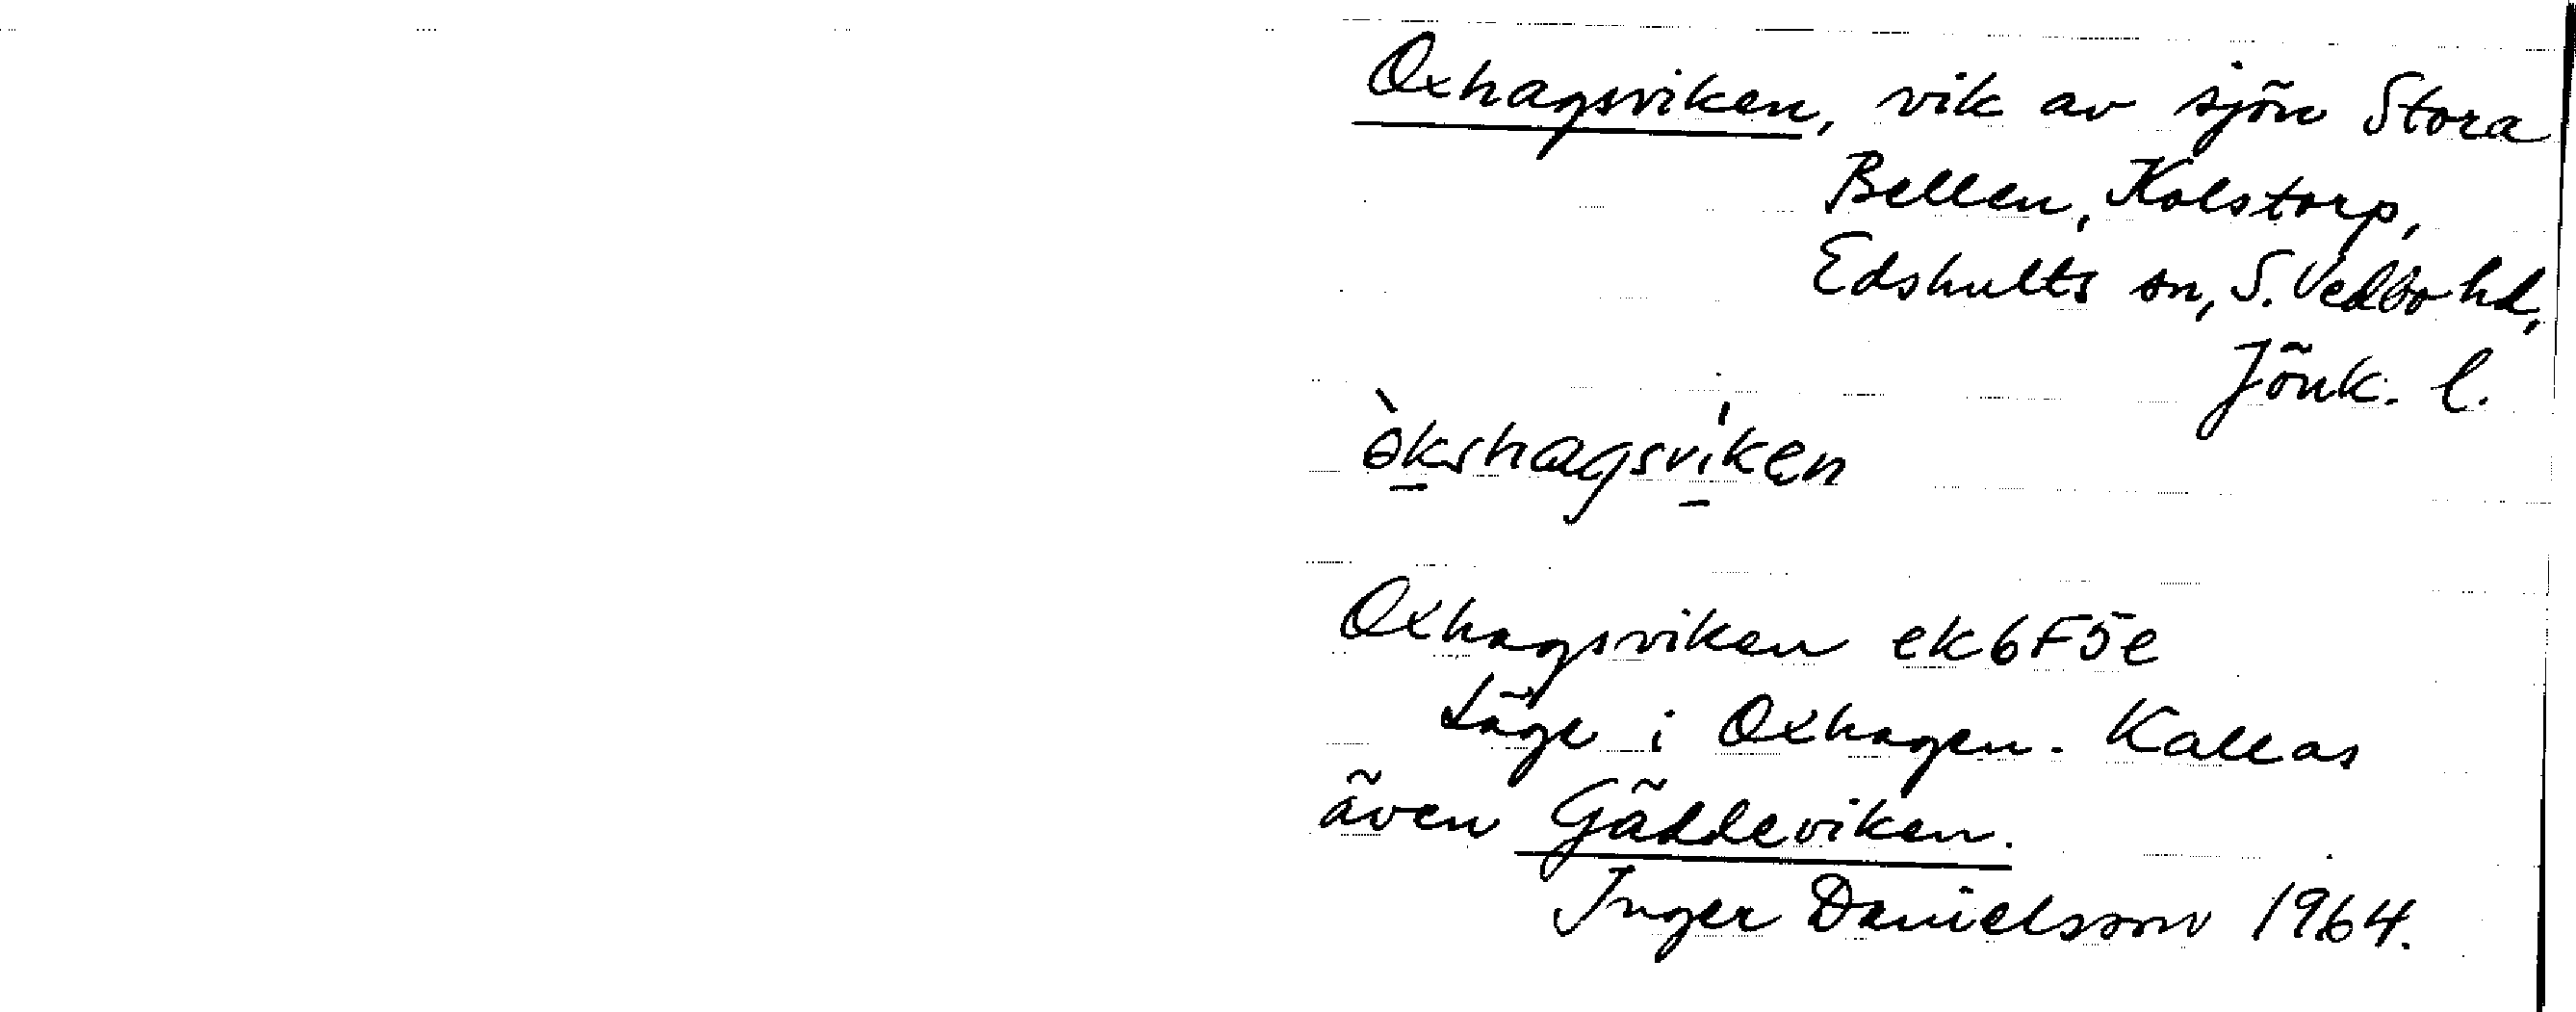 Oxhagsviken, vik av sjön Stora
Bellen, Kolstorp,
Edshults sn, S. Vedbo hd,
Jönk. l.
ɵ̀k̲shagsví̲ken
Oxhagsviken ek 6F5e
Läge i Oxhagen. Kallas
även Gäddeviken.
Inger Danielsson 1964.